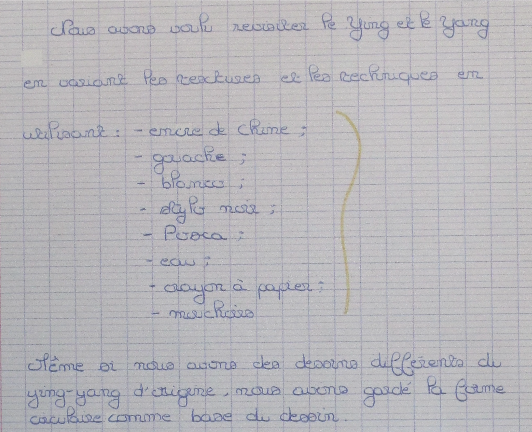 Nous avons voulu revisiter le Ying et le Yang
en variant les textures et les techniques en
utilisant : - encre de Chine ;
- gouache ;
- blanco ;
- stylo noir ;
- Posca ;
- eau ;
- crayon à papier ;
- mouchoirs
Même si nous avons des dessins différents du
ying-yang d'origine, nous avons gardé la forme
circulaire comme base du dessin.